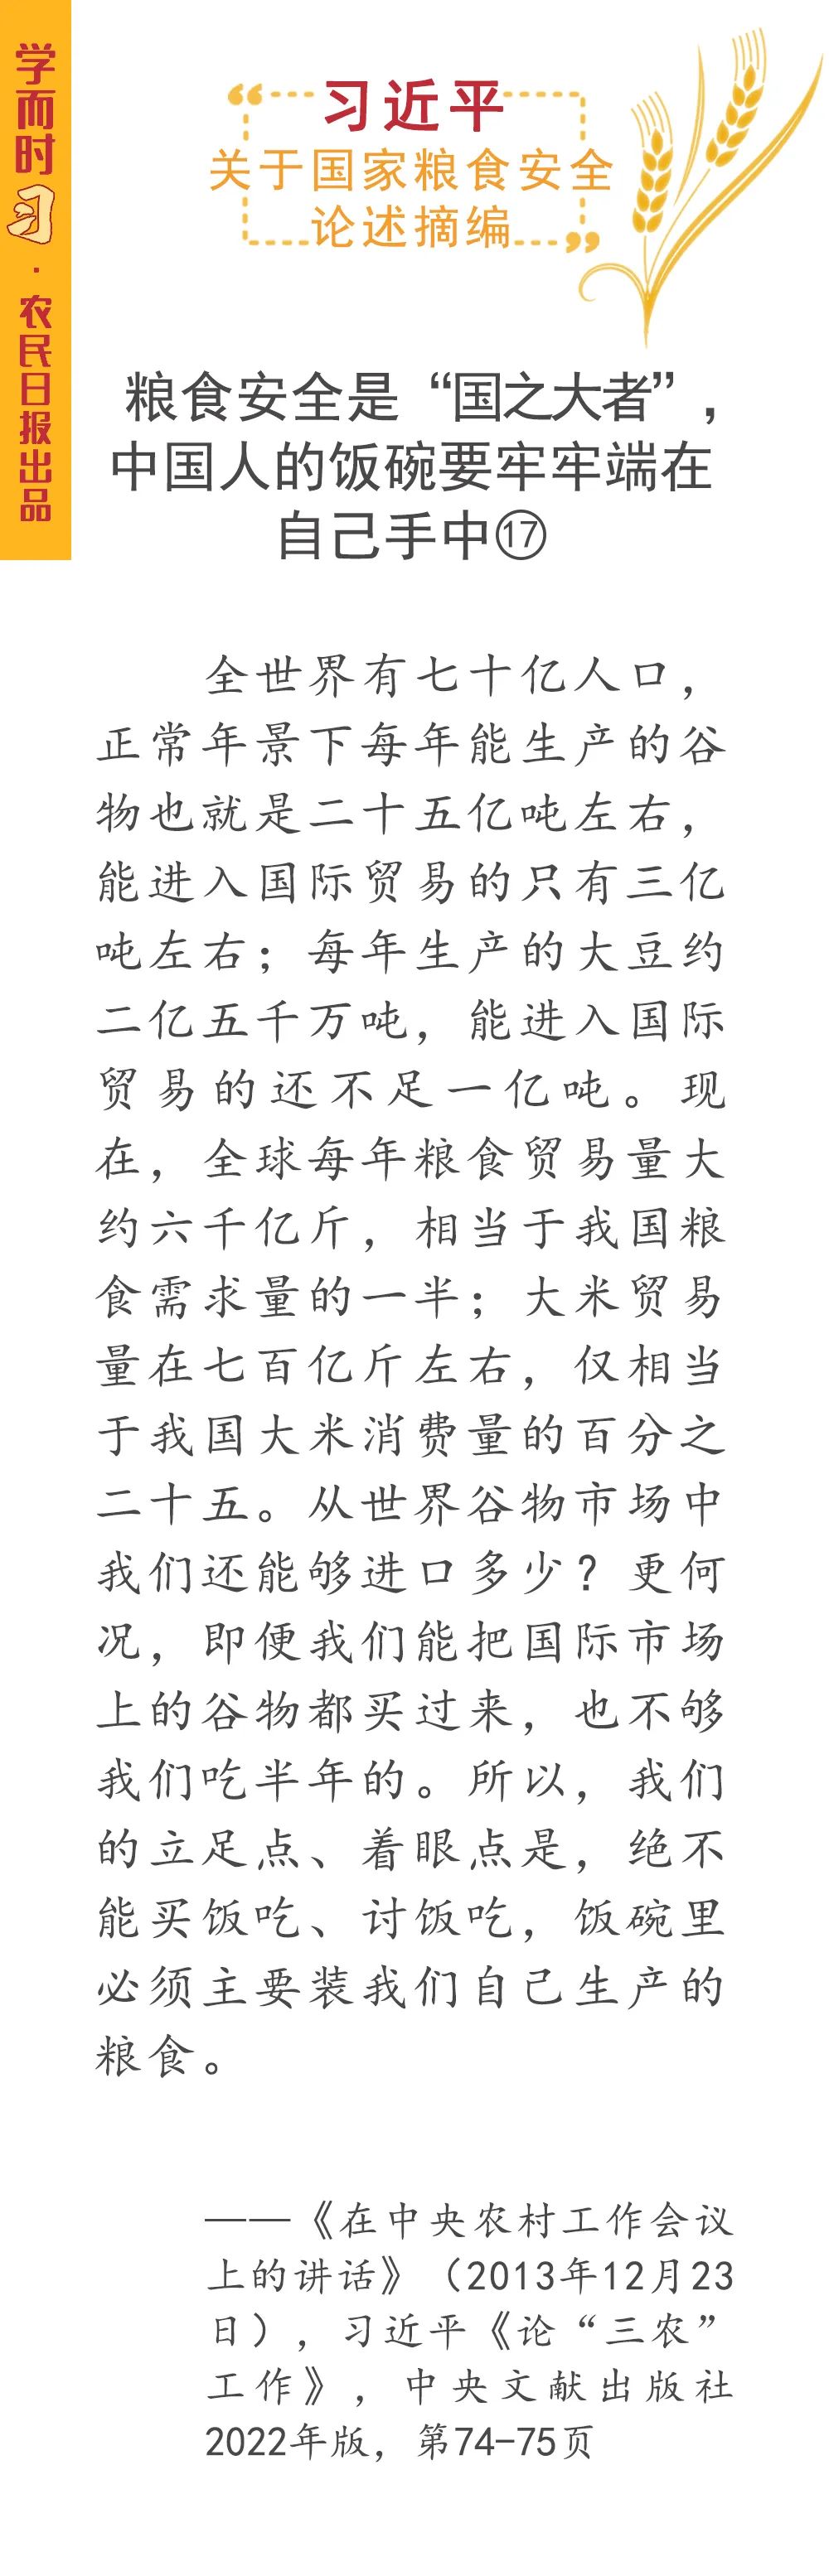 学而时习·农民日报出品
“习近平
关于国家粮食安全
论述摘编”
粮食安全是“国之大者”,
中国人的饭碗要牢牢端在
自己手中⑰
全世界有七十亿人口，
正常年景下每年能生产的谷
物也就是二十五亿吨左右，
能进入国际贸易的只有三亿
吨左右；每年生产的大豆约
二亿五千万吨，能进入国际
贸易的还不足一亿吨。现
在，全球每年粮食贸易量大
约六千亿斤，相当于我国粮
食需求量的一半；大米贸易
量在七百亿斤左右，仅相当
于我国大米消费量的百分之
二十五。从世界谷物市场中
我们还能够进口多少？更何
况，即便我们能把国际市场
上的谷物都买过来，也不够
我们吃半年的。所以，我们
的立足点、着眼点是，绝不
能买饭吃、讨饭吃，饭碗里
必须主要装我们自己生产的
粮食。
——《在中央农村工作会议
上的讲话》（2013年12月23
日），习近平《论“三农”
工作》，中央文献出版社
2022年版，第74-75页